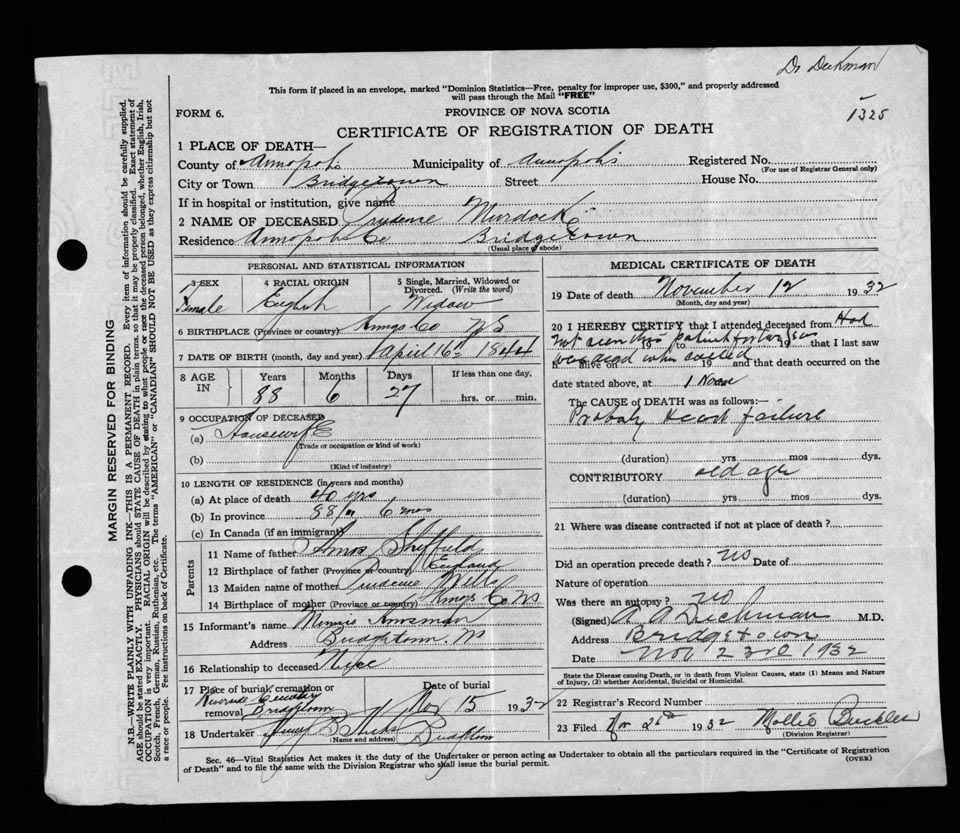 Dr Deckman
1325
This form if placed in an envelope, marked "Dominion Statistics—Free, penalty for improper use, $300," and properly addressed
will pass through the Mail "FREE"
FORM 6.
PROVINCE OF NOVA SCOTIA
CERTIFICATE OF REGISTRATION OF DEATH
1 PLACE OF DEATH—
County of Annapolis Municipality of Annapolis Registered No.
(For use of Registrar General only)
City or Town Bridgetown Street House No.
If in hospital or institution, give name
2 NAME OF DECEASED Prudence Murdock
Residence Annapolis Co Bridgetown
(Usual place of abode)
PERSONAL AND STATISTICAL INFORMATION
3 SEX
Female
4 RACIAL ORIGIN
English
5 Single, Married, Widowed or
Divorced. (Write the word)
Widow
6 BIRTHPLACE (Province or country) Kings Co NS
7 DATE OF BIRTH (month, day and year) April 16th 1844
8 AGE IN
Years Months Days If less than one day,
88 6 27 hrs. or min.
9 OCCUPATION OF DECEASED
(a) Housewife
(Trade or occupation or kind of work)
(b)
(Kind of industry)
10 LENGTH OF RESIDENCE (in years and months)
(a) At place of death 40 yrs
(b) In province 88 6 mos
(c) In Canada (if an immigrant)
Parents
11 Name of father Amos Sheffield
12 Birthplace of father (Province or country) England
13 Maiden name of mother Prudence Wells
14 Birthplace of mother (Province or country) Kings Co NS
15 Informant's name Minnie
Address Bridgetown NS
16 Relationship to deceased Niece
17 Place of burial, cremation or
removal
Riverside Cemetery
Bridgetown
Date of burial
Nov 15 1932
18 Undertaker Bridgetown
(Name and address)
MEDICAL CERTIFICATE OF DEATH
19 Date of death November 12 1932
(Month, day and year)
20 I HEREBY CERTIFY that I attended deceased from Had
not seen this patient for to 19 that I last saw
h alive on 19 and that death occurred on the
was dead when called
date stated above, at 1 Noon
The CAUSE of DEATH was as follows:—
Probaly Heart failure
(duration) yrs mos dys.
CONTRIBUTORY old age
(duration) yrs mos dys.
21 Where was disease contracted if not at place of death?
Did an operation precede death? no Date of
Nature of operation
Was there an autopsy? no
(Signed) A A Deckman M.D.
Address Bridgetown
Date Nov 23rd 1932
State the Disease causing Death, or in death from Violent Causes, state (1) Means and Nature
of Injury, (2) whether Accidental, Suicidal or Homicidal.
22 Registrar's Record Number
23 Filed 1932 Mollie Buckler
(Division Registrar)
Sec. 46—Vital Statistics Act makes it the duty of the Undertaker or person acting as Undertaker to obtain all the particulars required in the "Certificate of Registration
of Death" and to file the same with the Division Registrar who shall issue the burial permit.
(OVER)
MARGIN RESERVED FOR BINDING
N.B.—WRITE PLAINLY WITH UNFADING INK—THIS IS A PERMANENT RECORD. Every item of information should be carefully supplied.
AGE should be stated EXACTLY. PHYSICIANS should STATE CAUSE OF DEATH in plain terms, so that it may be properly classified. Exact statement of
OCCUPATION is very important. RACIAL ORIGIN will be described by stating to what people or race the deceased person belonged, whether English, Irish,
Scotch, French, German, Russian, Ruthenian, etc. The terms "AMERICAN" or "CANADIAN" SHOULD NOT BE USED as they express citizenship but not
a race or people. Fee instructions on back of Certificate.